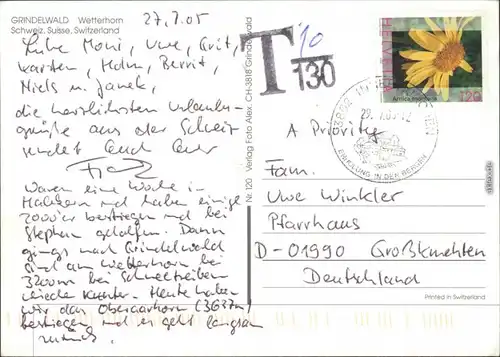 GRINDELWALD Wetterhorn
Schweiz, Suisse, Switzerland
27.7.05
Liebe Moni, Uwe, Grit,
Karsten, Holm, Berrit,
Niels u. Janek,
die herzlichsten Urlaubs-
grüße aus der Schweiz
sendet Euch Euer
Waren eine Woche in
und haben einige
2000er bestiegen und bei
Stephan geholfen. Dann
gings nach Grindelwald
sind am Wetterhorn bei
3200m bei Schneetreiben
wieder Heute haben
wir das Oberaarhorn (3637m)
bestiegen und es geht langsam
zurück.
Nr. 120 Verlag Foto Alex. CH-3818 Grindelwald
T 10
130
HELVETIA
Arnica montana
120
ERHOLUNG IN DEN BERGEN
A Priority
Fam.
Uwe Winkler
Pfarrhaus
D-01990 Großkmehlen
Deutschland
Printed in Switzerland